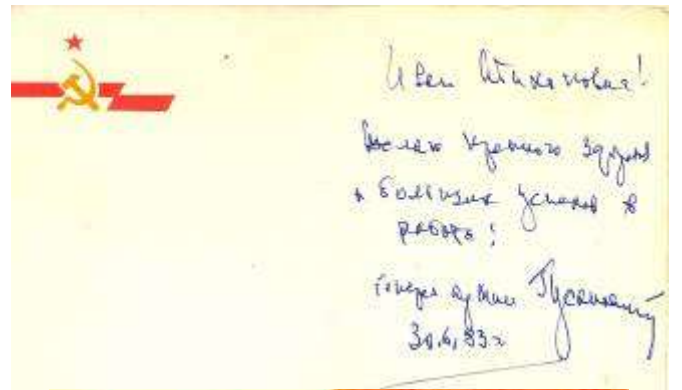 Иван Тихонович!
Желаю крепкого здоровья
и больших успехов в
работе!
Генерал армии
30.6.83 г